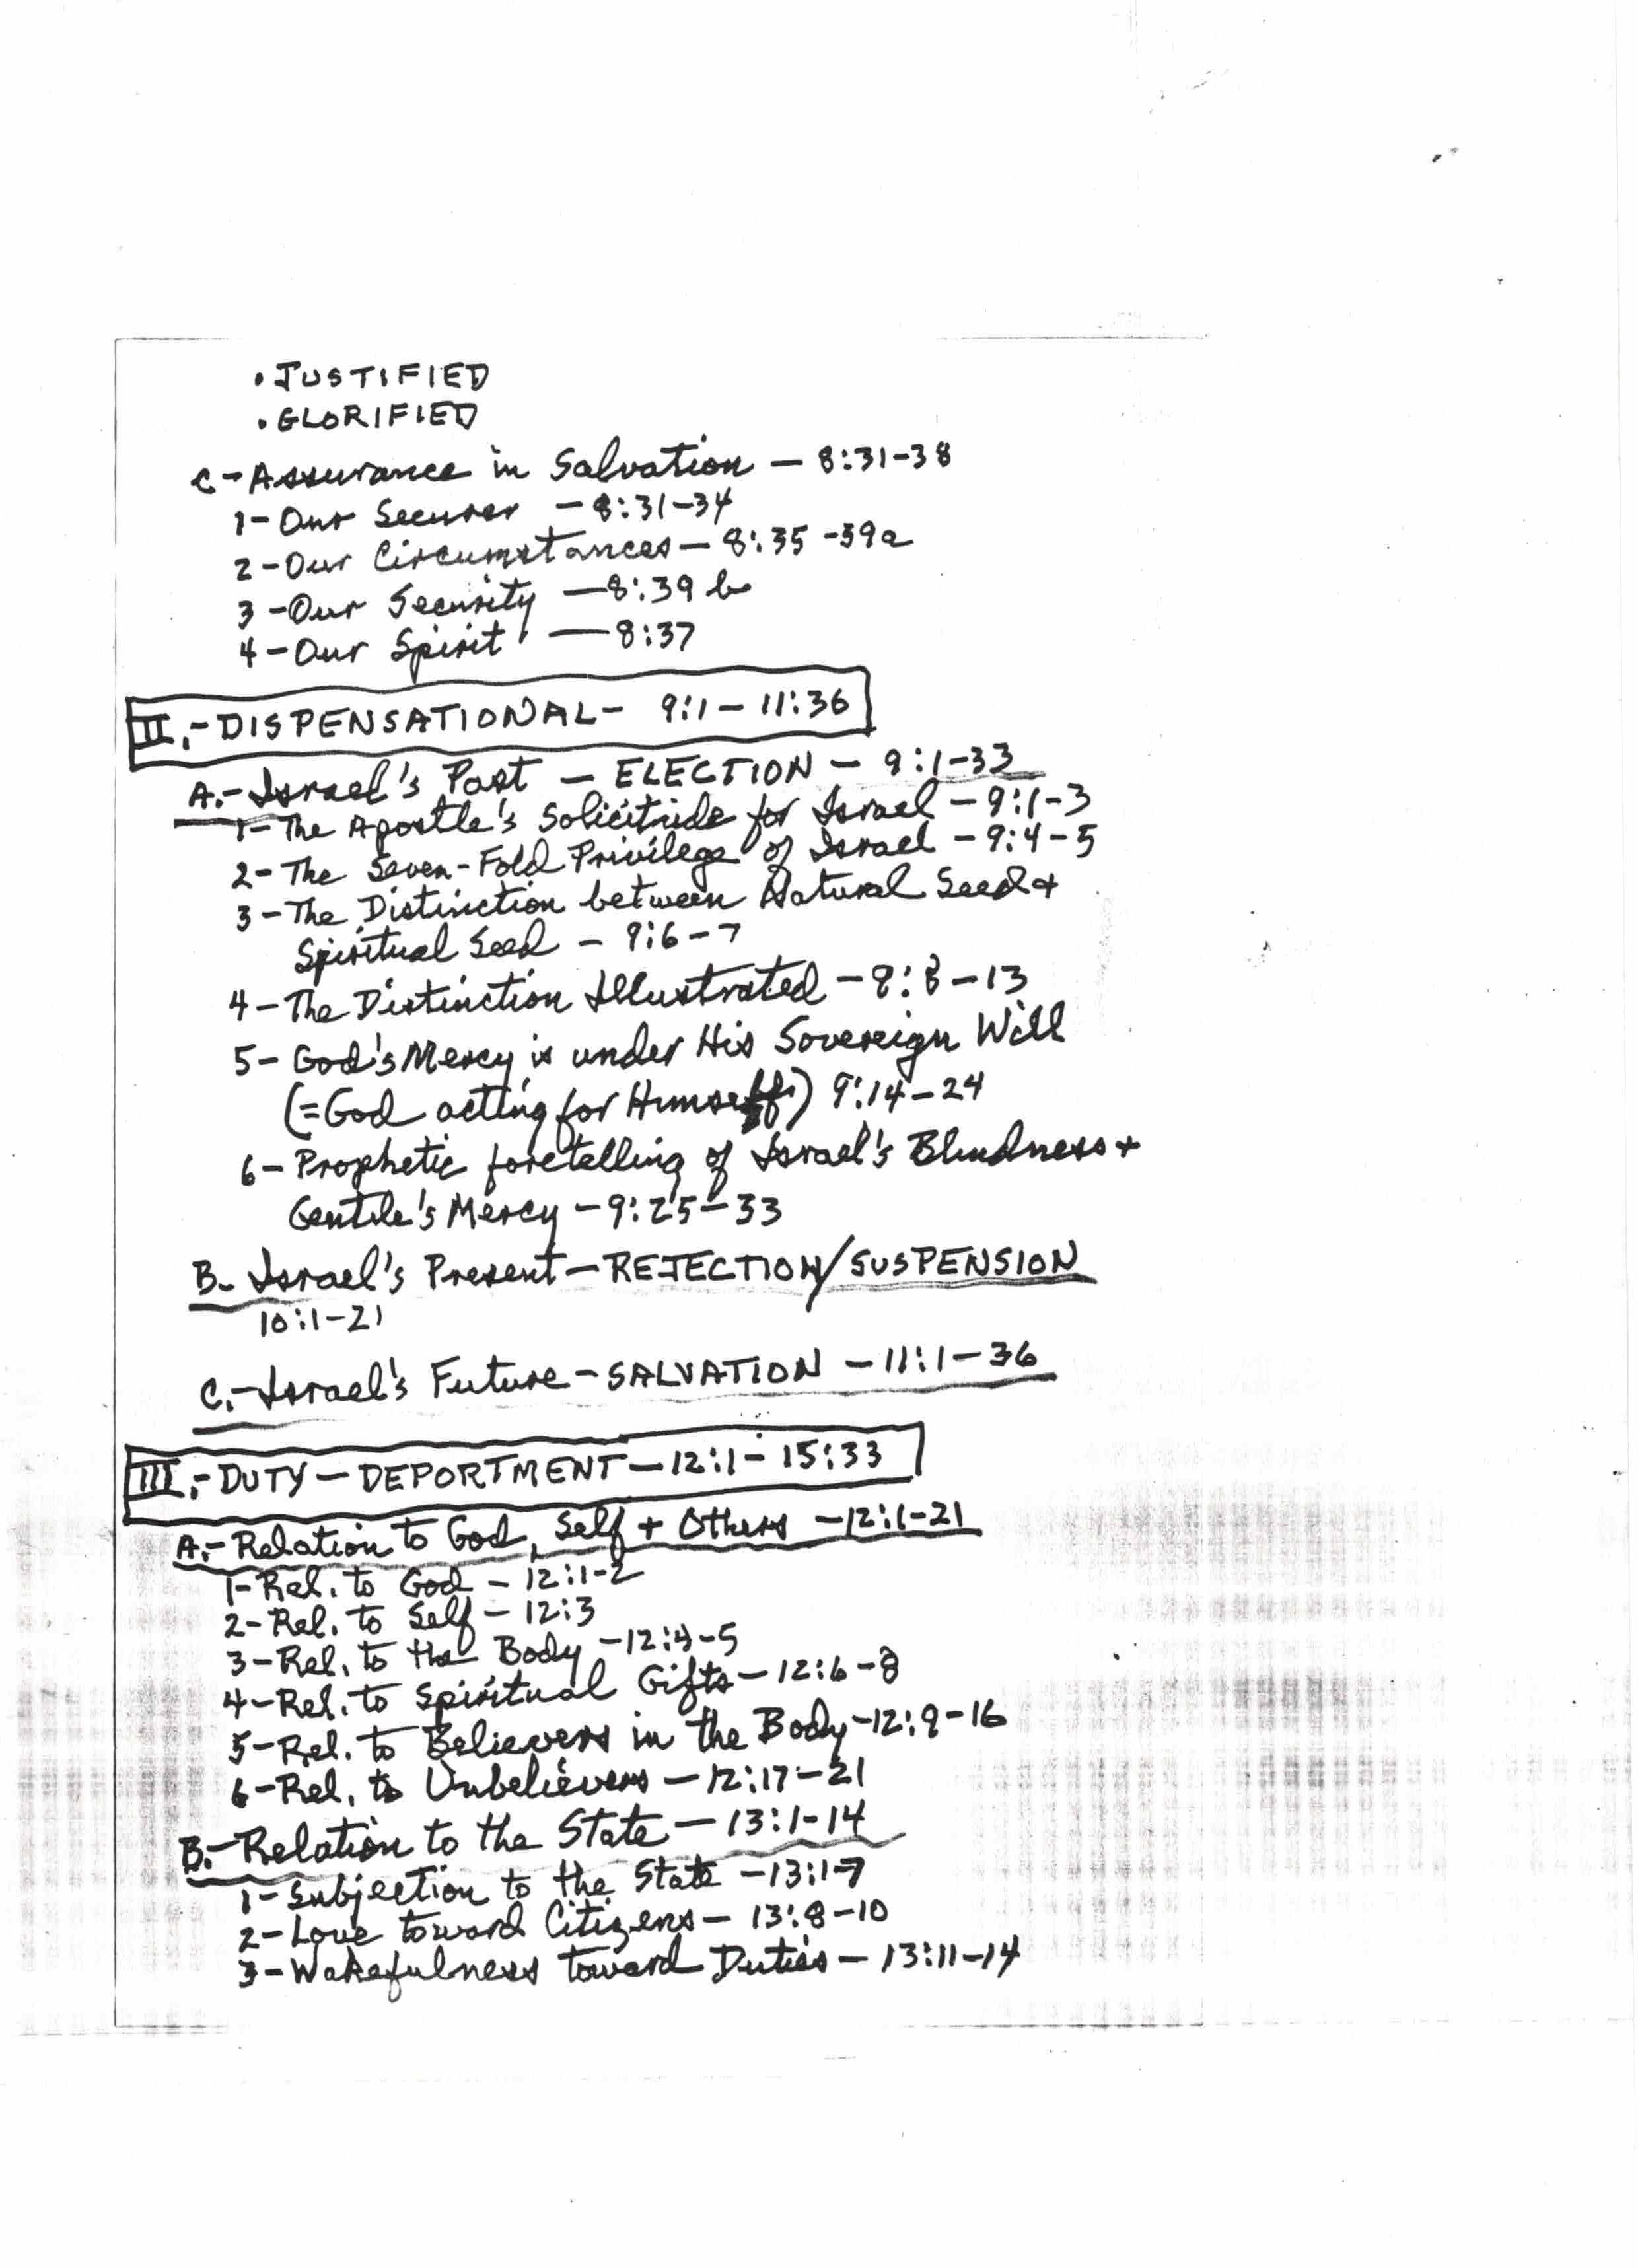 • JUSTIFIED
• GLORIFIED
C - Assurance in Salvation — 8:31-38
1 - Our Securer — 8:31-34
2 - Our Circumstances — 8:35-39a
3 - Our Security — 8:39b
4 - Our Spirit — 8:37
II. - DISPENSATIONAL - 9:1 - 11:36
A. - Israel's Past — ELECTION — 9:1-33
1 - The Apostle's Solicitude for Israel — 9:1-3
2 - The Seven-Fold Privilege of Israel — 9:4-5
3 - The Distinction between Natural Seed +
Spiritual Seed — 9:6-7
4 - The Distinction Illustrated — 9:8-13
5 - God's Mercy is under His Sovereign Will
(= God acting for Himself) 9:14-24
6 - Prophetic foretelling of Israel's Blindness +
Gentile's Mercy — 9:25-33
B - Israel's Present — REJECTION/SUSPENSION
10:1-21
C. - Israel's Future - SALVATION — 11:1-36
III. - DUTY — DEPORTMENT — 12:1 - 15:33
A. - Relation to God, Self + Others — 12:1-21
1 - Rel. to God — 12:1-2
2 - Rel. to Self — 12:3
3 - Rel. to the Body — 12:4-5
4 - Rel. to Spiritual Gifts — 12:6-8
5 - Rel. to Believers in the Body — 12:9-16
6 - Rel. to Unbelievers — 12:17-21
B. - Relation to the State — 13:1-14
1 - Subjection to the State — 13:1-7
2 - Love toward Citizens — 13:8-10
3 - Wakefulness toward Duties — 13:11-14